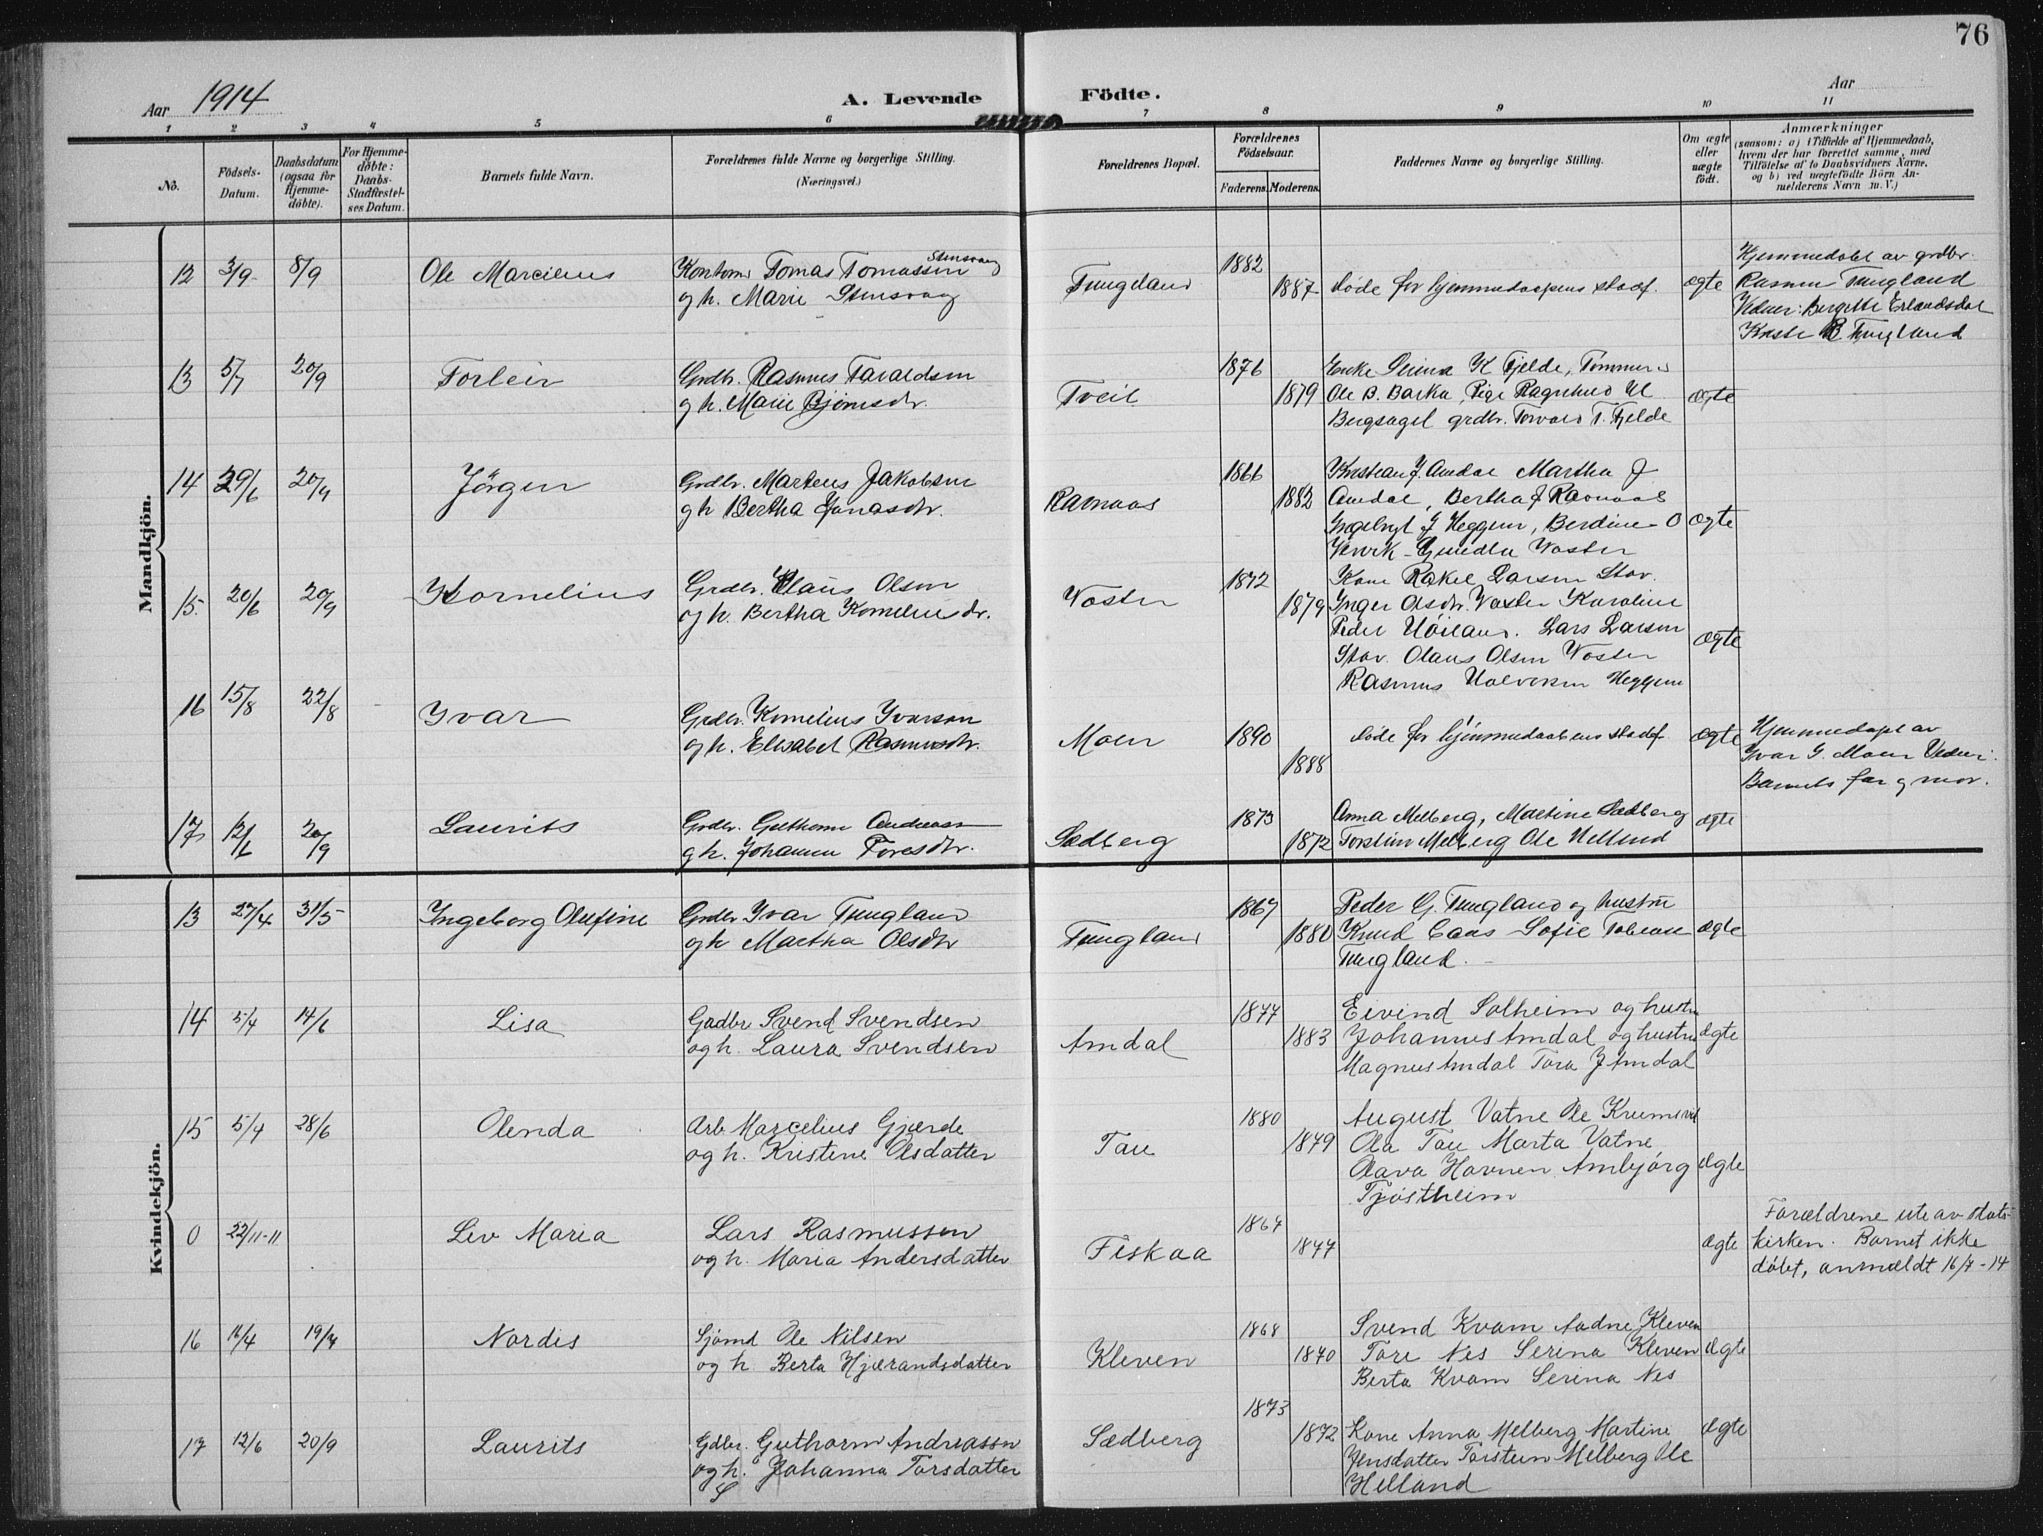 76
Aar 1914
A. Levende Födte.
Aar
1 2 3 4 5 6 7 8 9 10 11
No.
Födsels-Datum.
Daabsdatum (ogsaa for Hjemme-döbte).
For Hjemme-döbte: Daabs-Stadfæstel-ses Datum.
Barnets fulde Navn.
Forældrenes fulde Navne og borgerlige Stilling.
(Næringsvei.)
Forældrenes Bopæl.
Forældrenes Födselsaar.
Faderens. Moderens.
Faddernes Navne og borgerlige Stilling.
Om ægte eller uægte födt.
Anmærkninger
(saasom: a) i Tilfælde af Hjemmedaab,
hvem der har forrettet samme, med
Tilföielse af to Daabsvidners Navne,
og b) ved uægtefödte Börn An-
melderens Navn m. V.)
Mandkjön.
12 3/9 8/9 Ole Marcelius
Tomas Tomassen Stensvag
og h. Marie Stensvag
Tungland 1882 1887
døde før hjemmedaapens stadf. ægte
Hjemmedøbt av grdbr.
Rasmus Tungland
Vidner: Bergitte Erlandsdal
Tungland
13 5/7 20/9 Torleiv
Grdbr. Rasmus Taraldsen
og h. Marie Bjørnsdtr.
Tveit 1876 1879
Enke Serina K Fjelde, Tømmerm
Ole B. Barka, Pige Ragnhild
Bergsagel grdbr. Torvald T. Fjelde
ægte
14 29/6 20/9 Jörgen
Grdbr. Martens Jakobsen
og h Bertha Jonasdtr.
Ramaas 1866 1882
Kristian J. Amdal Martha J
Amdal, Bertha J Ramaas
Ingebrgt J Heggem, Berdine O
Gunilla Voster
ægte
15 20/6 20/9 Kornelius
Grdbr. Klaus Olsen
og h. Bertha Korneliusdr.
Voster 1872 1879
Kone Rakel Larsen Stav.
Inger Olsdtr. Voster Karoline
Peder Høiland. Lars Larsen
Stav. Olaus Olsen Voster
Rasmus Halvorsen Heggem
ægte
16 15/8 22/8 Yvar
Grdbr. Kornelius Yvarson
og h. Elisabet Rasmusdtr.
Moen 1890 1888
døde før hjemmedaabens stadf. ægte
Hjemmedøpt av
Yvar G. Moen Vidner:
Barnets far og mor.
17 12/6 20/9 Laurits
Grdbr. Guthorm Andreass
og h. Johanna Toresdtr.
Sædberg 1873 1872
Anna Melberg, Martine Sædberg
Torstein Melberg Ole Helland
ægte
Kvindekjön.
13 27/4 31/5 Ingeborg Olufine
Grdbr Yvar Tungland
og h Martha Olsdtr
Tungland 1867 1880
Peder G. Tungland og hustru
Knud Caas Sofie Tobiase
Tungland.
ægte
14 5/4 14/6 Lisa
Gadbr Svend Svendsen
og h. Laura Svendsen
Amdal 1877 1883
Eivind Solheim og hustru
Johannes Amdal og hustru
Magnus Amdal Tora J Amdal
ægte
15 5/4 28/6 Olenda
Arb Marcelius Gjærde
og h. Kristene Olsdatter
Tau 1880 1879
August Vatne Ole Krumsvik
Ola Tau Marta Vatne
Olava Havnen Ambjörg
Tjøstheim
ægte
0 22/11-11 Liv Maria
Lars Rasmussen
og h. Maria Andersdatter
Fiskaa 1864 1877
ægte
Forældrene ute av stats-
kirken. Barnet ikke
døbt, anmældt 16/7-14
16 16/4 19/7 Nordis
Sjømd Ole Nilsen
og h. Berta Hjærandsdatter
Kleven 1868 1870
Svend Kvam Aadne Kleven
Tore Nes Serina Kleven
Berta Kvam Serina Nes
ægte
17 12/6 20/9 Laurits
Gdbr. Guthorm Andreassn
og h. Johanna Torsdatter
S
Sædberg 1873 1872
Kone Anna Melberg Martine
Jensdatter Torstein Melberg Ole
Helland
ægte